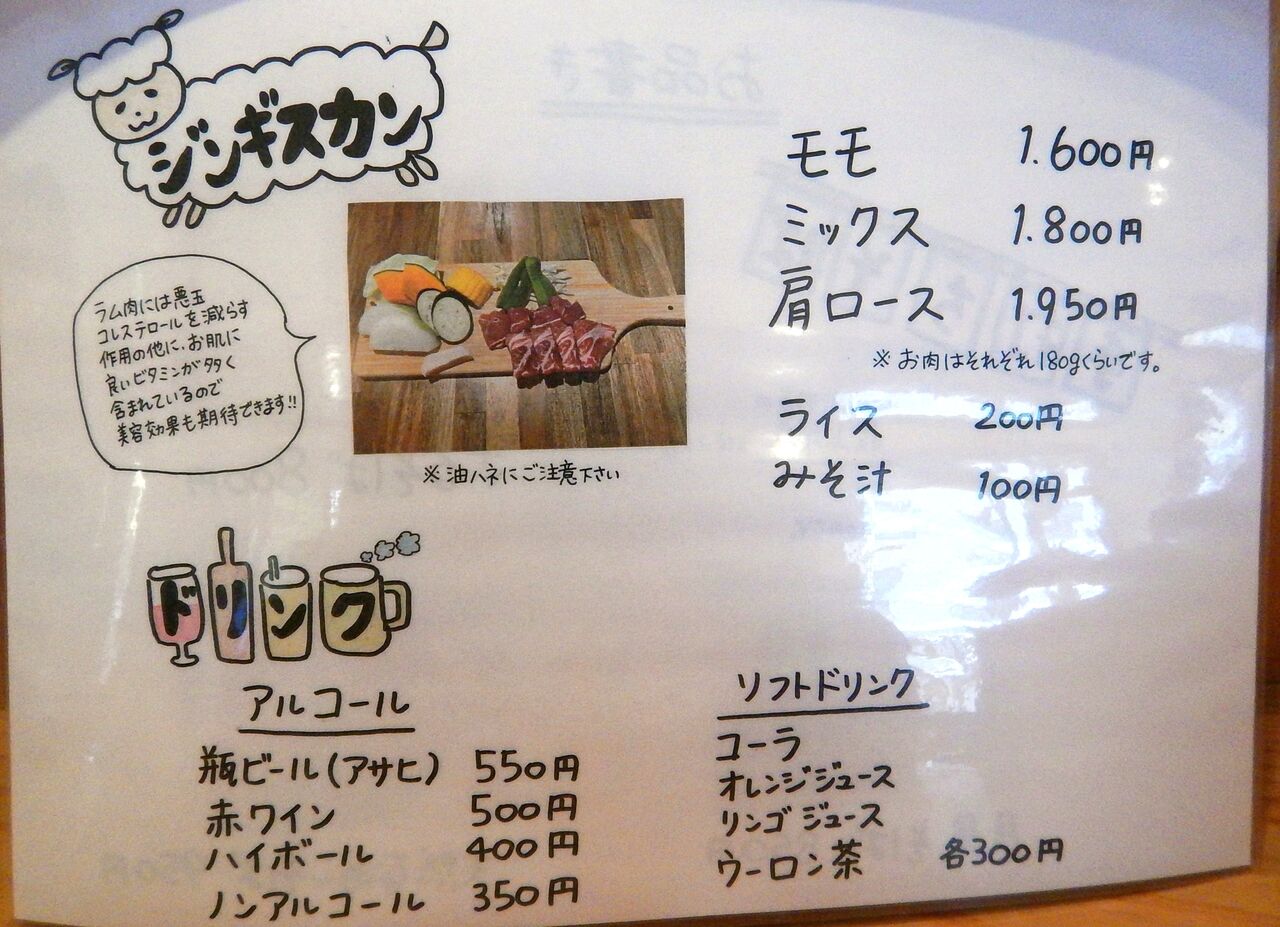 ジンギスカン
ラム肉には悪玉
コレステロールを減らす
作用の他に、お肌に
良いビタミンが多く
含まれているので
美容効果も期待できます!!
※油ハネにご注意下さい
モモ 1.600円
ミックス 1.800円
肩ロース 1.950円
※お肉はそれぞれ180gくらいです。
ライス 200円
みそ汁 100円
ドリンク
アルコール
瓶ビール(アサヒ) 550円
赤ワイン 500円
ハイボール 400円
ノンアルコール 350円
ソフトドリンク
コーラ
オレンジジュース
リンゴジュース
ウーロン茶 各300円
お品書き